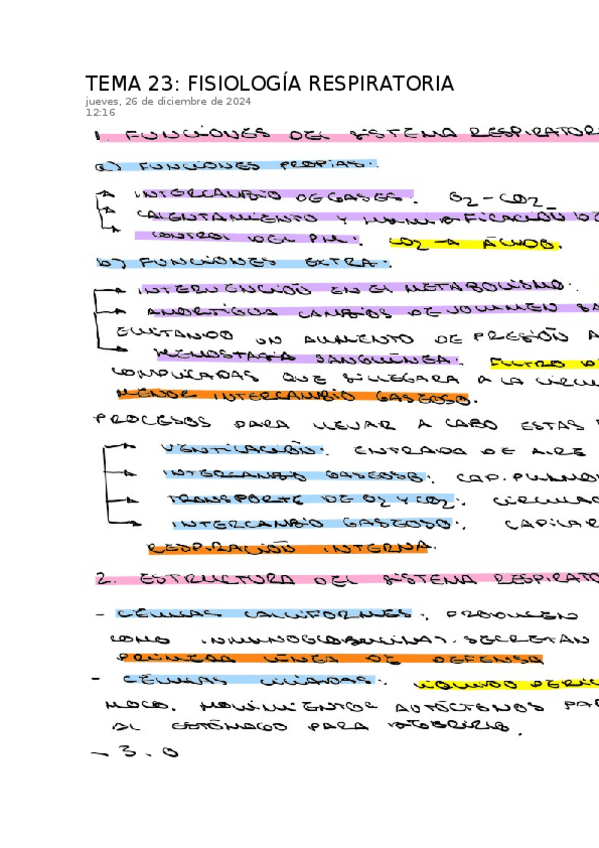 TEMA 23: FISIOLOGÍA RESPIRATORIA
jueves, 26 de diciembre de 2024
12:16
1. FUNCIONES DEL SISTEMA RESPIRATOR
a) FUNCIONES PROPIAS:
INTERCAMBIO DE GASES. O2-CO2
CALENTAMIENTO Y HUMIDIFICACIÓN DE
CONTROL DEL PH: CO2 → ÁCIDO.
b) FUNCIONES EXTRA:
INTERVENCIÓN EN EL METABOLISMO.
AMORTIGUA CAMBIOS DE VOLUMEN SA
EVITANDO UN AUMENTO DE PRESIÓN A
HEMOSTASIA SANGUÍNEA: FILTRO
COMPLICADAS QUE SI LLEGARA A LA CIRCU
MENOR INTERCAMBIO GASEOSO.
PROCESOS PARA LLEVAR A CABO ESTAS
VENTILACIÓN: ENTRADA DE AIRE
INTERCAMBIO GASEOSO: CAP. PULMON
TRANSPORTE DE O2 Y CO2: CIRCULAC
INTERCAMBIO GASEOSO: CAPILAR
RESPIRACIÓN INTERNA.
2. ESTRUCTURA DEL SISTEMA RESPIRATO
- CÉLULAS CALICIFORMES: PRODUCEN
COMO INMUNOGLOBULINAS. SECRETAN
PRIMERA LÍNEA DE DEFENSA
- CÉLULAS CILIADAS: LÍQUIDO PERIC
MOCO. MOVIMIENTOS AUTÓCTONOS PAR
AL ESTÓMAGO PARA
- 3.0